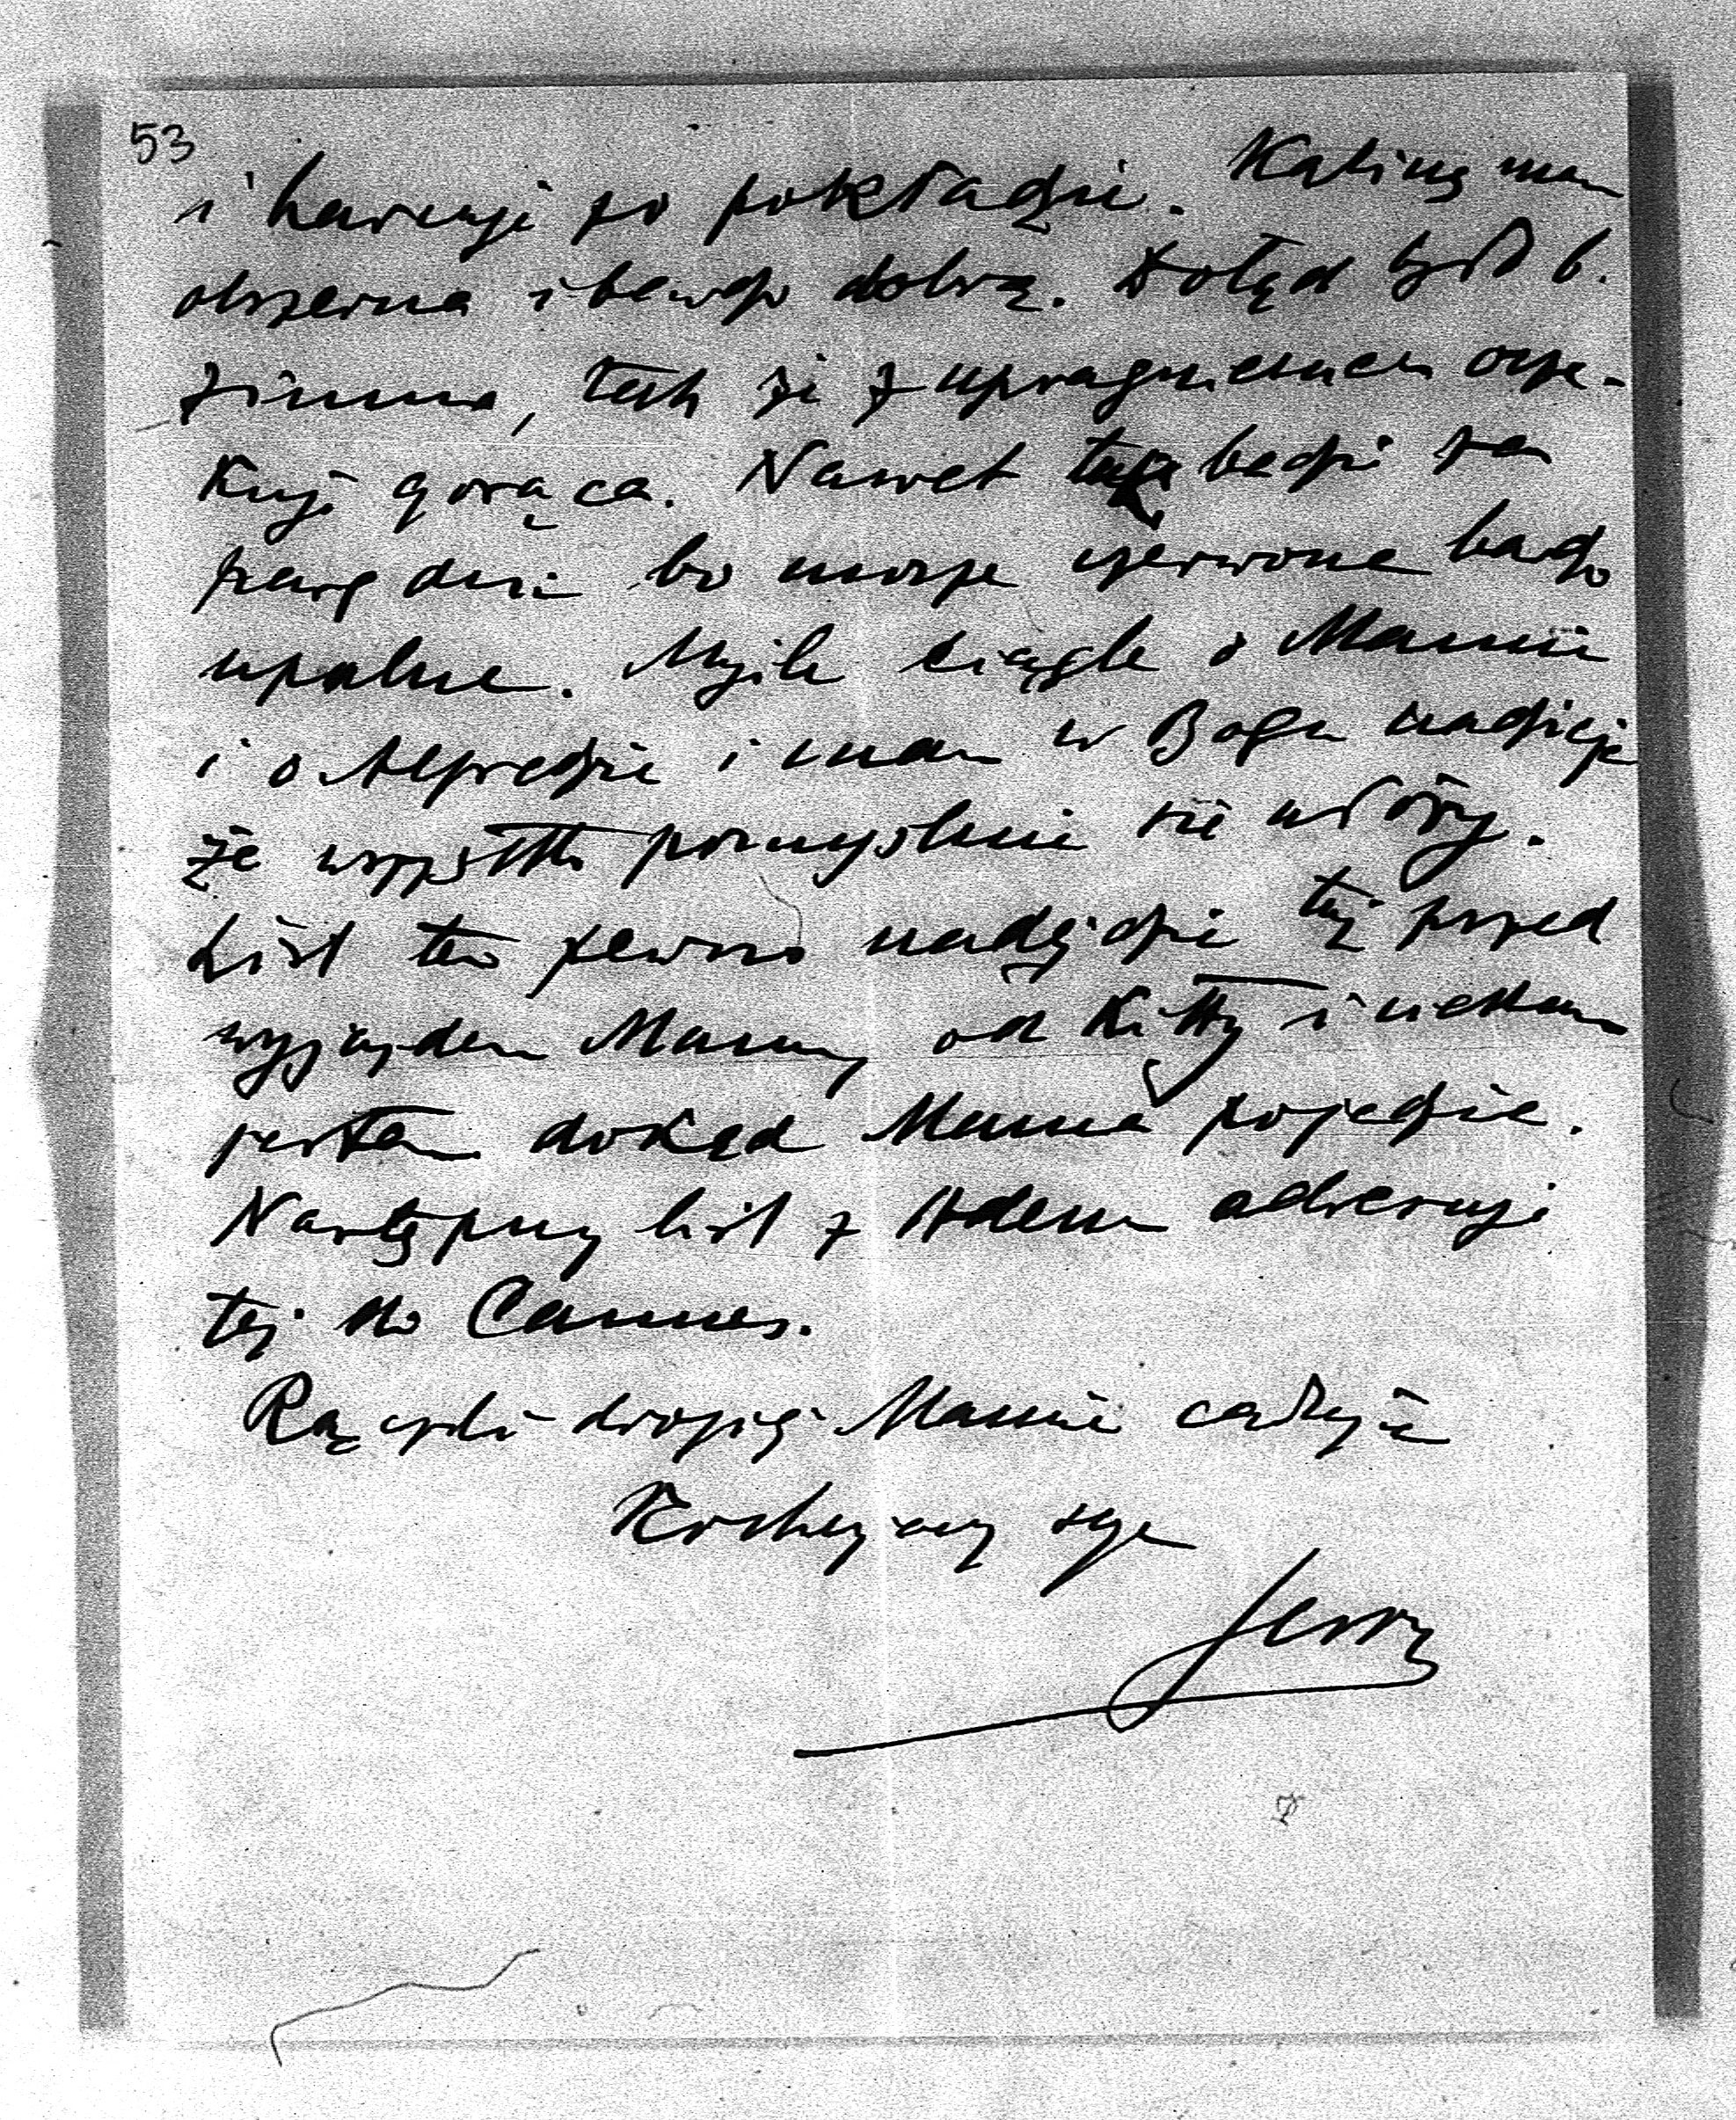 53
i hasuję po pokładzie. Kabinę mam
obszerną i bardzo dobrą. Dotąd było b.
zimno, tak że z upragnieniem ocze-
kuję gorąca. Nawet będzie za
parę dni bo morze czerwone bardzo
upalne. Myślę ciągle o Mamie
i o Alfredzie i mam w Bogu nadzieję
że wszystko pomyślnie się ułoży.
List ten pewno nadejdzie tuż przed
wyjazdem Mamy od Kitty i ciekaw
jestem dokąd Mama pojedzie.
Następny list z Adenu adresuję
też do Cannes.
Rączki drogiej Mamie całuję
Kochający syn
Jerzy